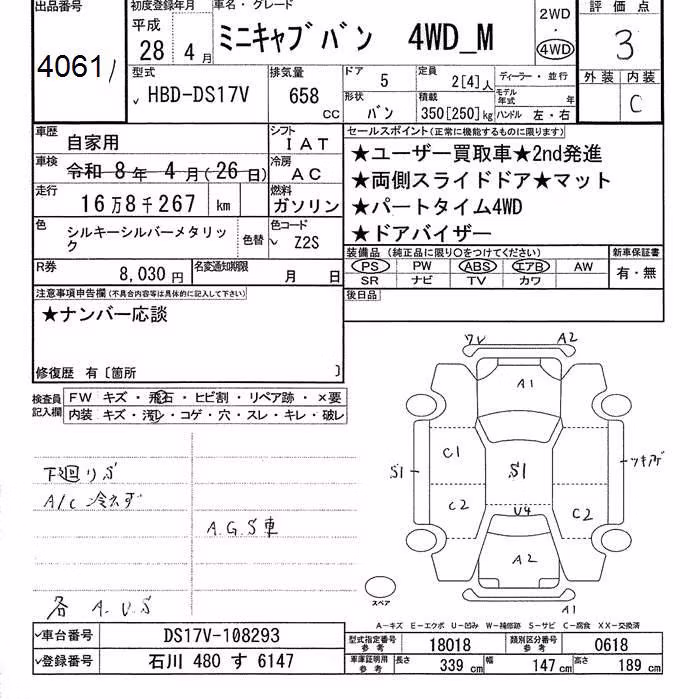 出品番号
4061
初度登録年月
平成
28 4月
車名・グレード
ミニキャブバン 4WD_M
2WD
・
4WD
評価点
3
外装 内装
C
型式
HBD-DS17V
排気量
658
CC
ドア 5
形状 バン
定員 2[4]人
積載 350[250]kg
ディーラー・並行
モデル年式 年
ハンドル 左・右
車歴 自家用
シフト IAT
車検 令和 8年 4月(26日)
冷房 AC
走行 16万8千267 km
燃料 ガソリン
色 シルキーシルバーメタリック
色替
色コード Z2S
R券 8,030円
名変通知期限 月 日
セールスポイント(正常に機能するものに限ります)
★ユーザー買取車★2nd発進
★両側スライドドア★マット
★パートタイム4WD
★ドアバイザー
装備品(純正品に限り○をつけてください)
PS PW ABS エアB AW
SR ナビ TV カワ
新車保証書
有・無
後日品
注意事項申告欄(不具合内容等は具体的に記入して下さい)
★ナンバー応談
修復歴 有〔箇所 〕
検査員記入欄
FW キズ・飛石・ヒビ割・リペア跡・×要
内装 キズ・汚レ・コゲ・穴・スレ・キレ・破レ
下廻りS
A/C 冷えず
A.G.S車
各 A.U.S
ワレ A2
A1
C1
S1
S1
ツキアゲ
C2
U4
C2
A2
A1
スペア
A-キズ E-エクボ U-凹み W-補修跡 S-サビ C-腐食 XX-交換済
車台番号 DS17V-108293
登録番号 石川 480 す 6147
型式指定番号 参考 18018
類別区分番号 参考 0618
車庫証明用 参考 長さ 339 cm 幅 147 cm 高さ 189 cm